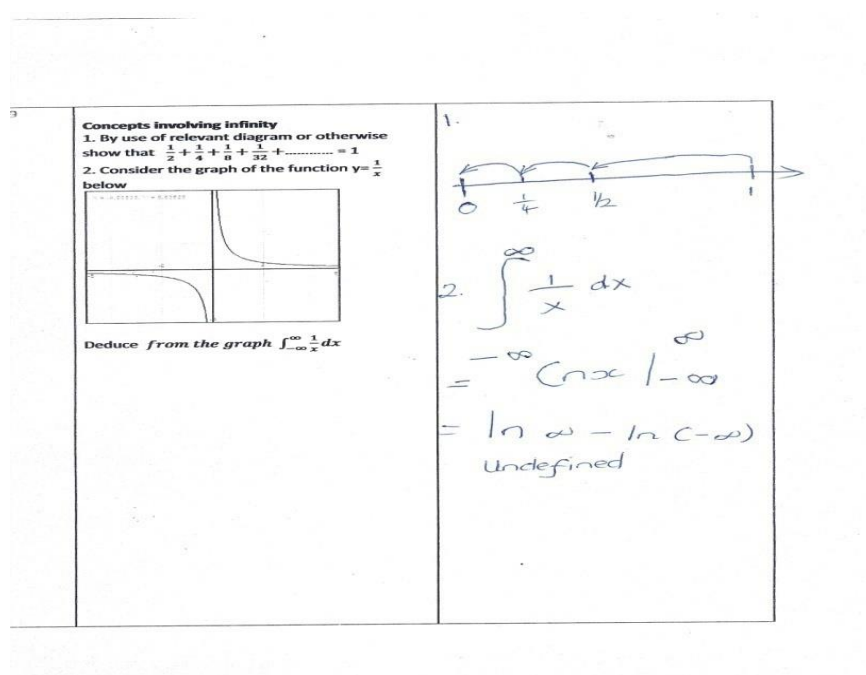 Concepts involving infinity
1. By use of relevant diagram or otherwise
show that 1/2 + 1/4 + 1/8 + 1/32 + ............ = 1
2. Consider the graph of the function y= 1/x
below
Deduce from the graph ∫_{-∞}^{∞} 1/x dx
1.
0 1/4 1/2 1
2. ∫_{-∞}^{∞} 1/x dx
= lnx |_{-∞}^{∞}
= ln ∞ - ln (-∞)
undefined